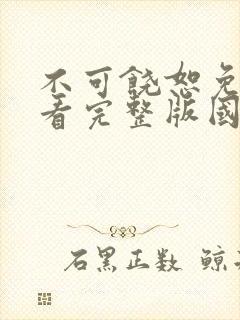 不可饶恕免
看完整版国
石黑正数 鲸